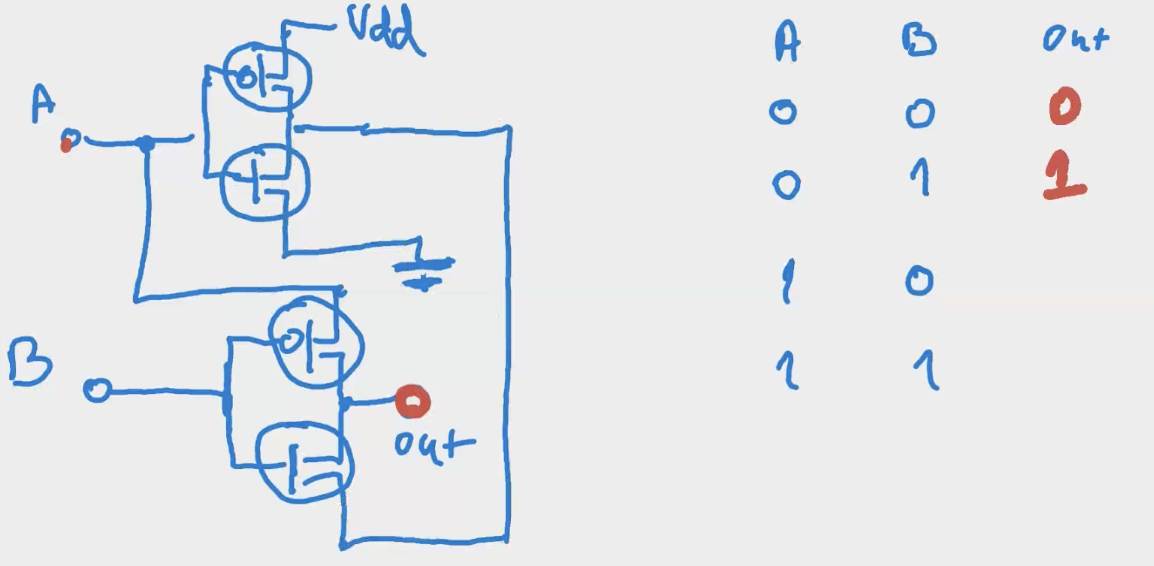 Vdd
A
B
out
A B Out
0 0 0
0 1 1
1 0
1 1